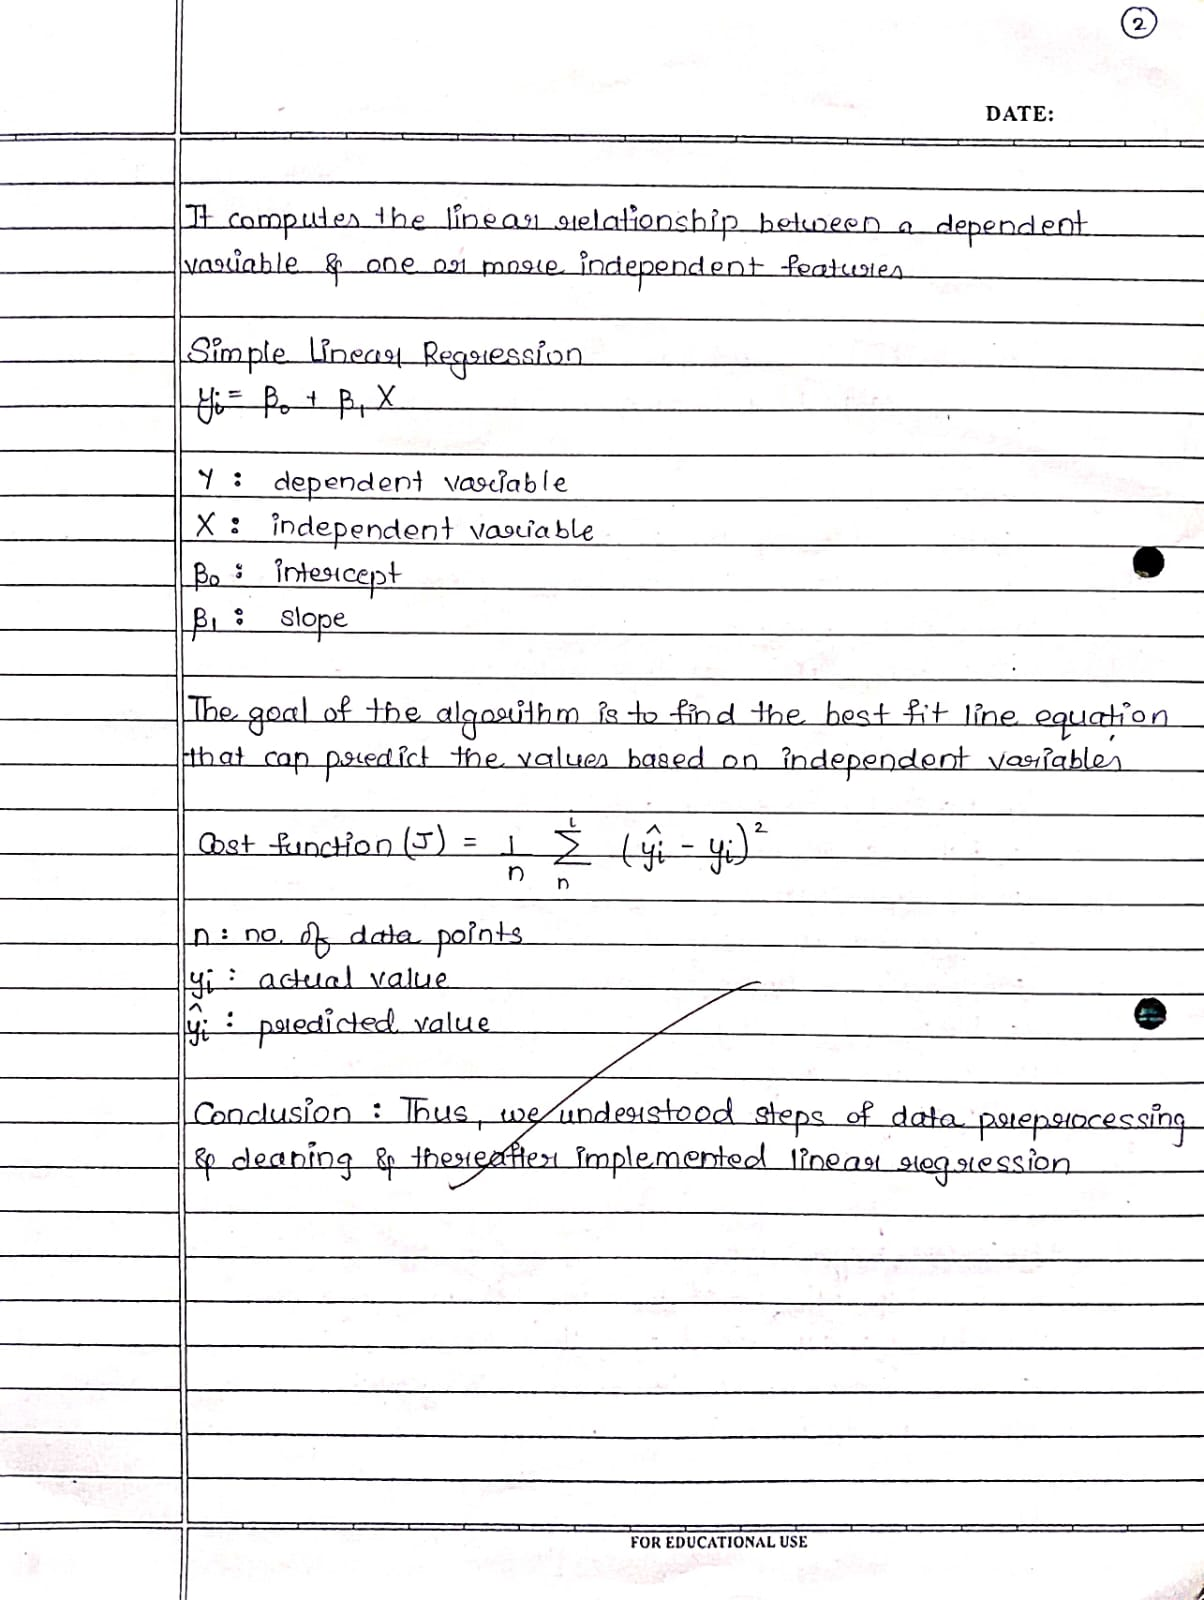 2
DATE:
It computes the linear relationship between a dependent
variable & one or more independent features
Simple Linear Regression
yi = β0 + β1 X
Y : dependent variable
X : independent variable
β0 : intercept
β1 : slope
The goal of the algorithm is to find the best fit line equation
that can predict the values based on independent variables
Cost function (J) = 1/n Σ_n^i (ŷi - yi)²
n : no. of data points
yi : actual value
ŷi : predicted value
Conclusion : Thus, we understood steps of data preprocessing
& cleaning & thereafter implemented linear regression
FOR EDUCATIONAL USE